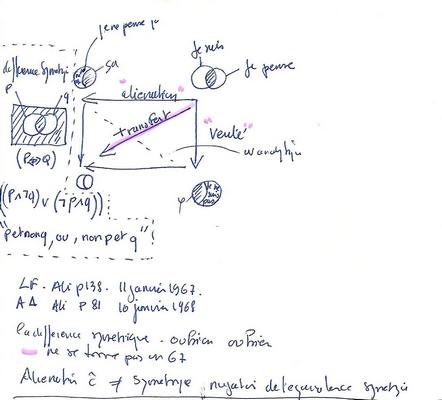 je ne pense pas
ça
je suis
je pense
difference symetri
p
q
"alienation"
transfert
"verité"
(P⇔Q)
((P∧¬q) ∨ (¬p∧q))
"p et non q, ou, non p et q" !
je ne suis pas
φ
LF. Ali p138. 11 janvier 1967.
A Δ Ali p 81 10 janvier 1968
la difference symetrique. ou bien ou bien
ne se trouve pas en 67
≠ symetrique negation de l'equivalence symetri